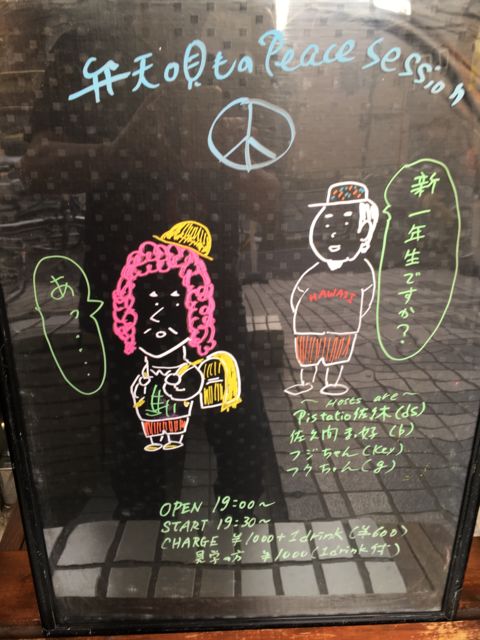 弁天唄もの Peace session
新一年生ですか?
あっ...
HAWAII
〜 Hosts are 〜
Pistatio佐々木 (ds)
フジちゃん (Key)
フクちゃん (g)
OPEN 19:00〜
START 19:30〜
CHARGE ¥1000+1drink (¥600)
見学の方 ¥1000 (1drink付)